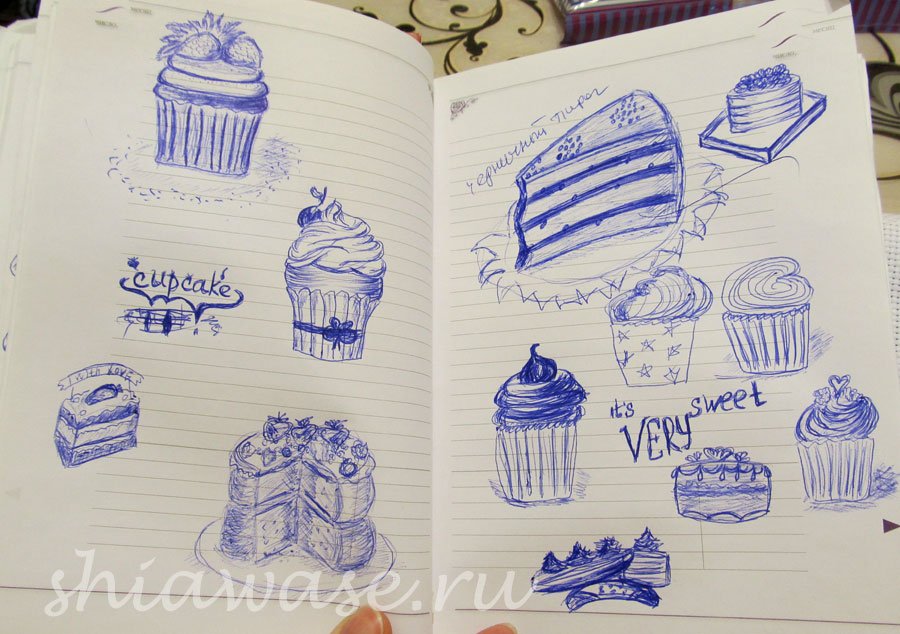 cupcake
with love
черничный пирог
it's
VERY sweet
shiawase.ru